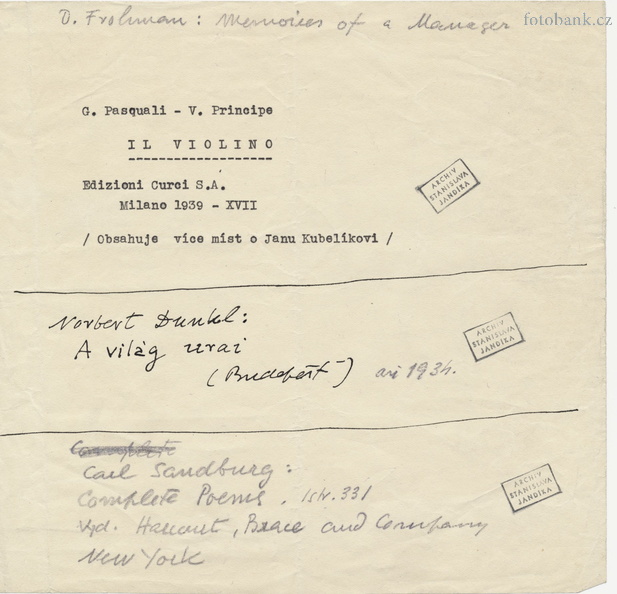 D. Frohman: Memoires of a Manager
fotobank.cz
G. Pasquali - V. Principe
IL VIOLINO
Edizioni Curci S.A.
Milano 1939 - XVII
/ Obsahuje více míst o Janu Kubelíkovi /
ARCHIV
STANISLAVA
JANDÍKA
Norbert Dunkl:
A világ urai
(Budapešť) asi 1934.
ARCHIV
STANISLAVA
JANDÍKA
Complete
Carl Sandburg:
Complete Poems, /str. 331
Vyd. Harcourt, Brace and Company
New York
ARCHIV
STANISLAVA
JANDÍKA